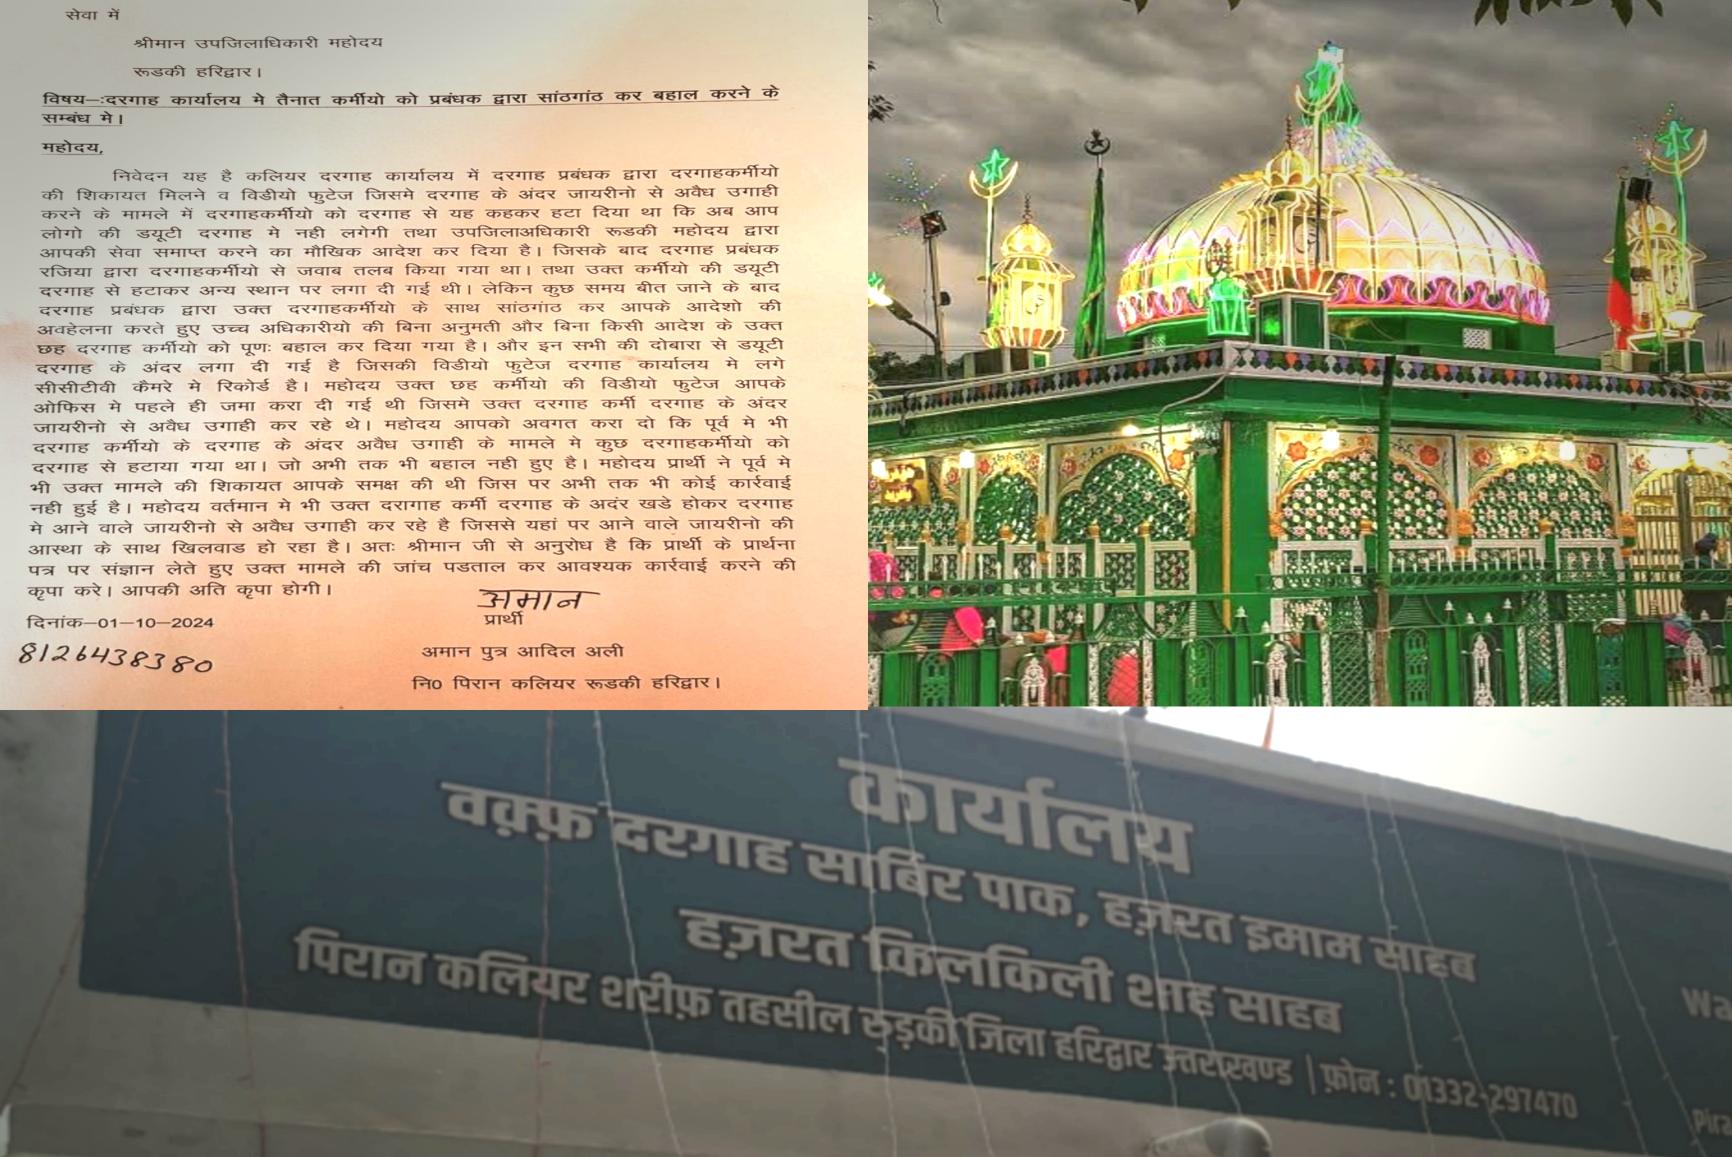 सेवा में
श्रीमान उपजिलाधिकारी महोदय
रूडकी हरिद्वार।
विषय–:दरगाह कार्यालय मे तैनात कर्मीयो को प्रबंधक द्वारा सांठगांठ कर बहाल करने के
सम्बंध मे।
महोदय,
निवेदन यह है कलियर दरगाह कार्यालय में दरगाह प्रबंधक द्वारा दरगाहकर्मीयो
की शिकायत मिलने व विडीयो फुटेज जिसमे दरगाह के अंदर जायरीनो से अवैध उगाही
करने के मामले में दरगाहकर्मीयो को दरगाह से यह कहकर हटा दिया था कि अब आप
लोगो की डयूटी दरगाह मे नही लगेगी तथा उपजिलाअधिकारी रूडकी महोदय द्वारा
आपकी सेवा समाप्त करने का मौखिक आदेश कर दिया है। जिसके बाद दरगाह प्रबंधक
रजिया द्वारा दरगाहकर्मीयो से जवाब तलब किया गया था। तथा उक्त कर्मीयो की डयूटी
दरगाह से हटाकर अन्य स्थान पर लगा दी गई थी। लेकिन कुछ समय बीत जाने के बाद
दरगाह प्रबंधक द्वारा उक्त दरगाहकर्मीयो के साथ सांठगांठ कर आपके आदेशो की
अवहेलना करते हुए उच्च अधिकारीयो की बिना अनुमती और बिना किसी आदेश के उक्त
छह दरगाह कर्मीयो को पूणः बहाल कर दिया गया है। और इन सभी की दोबारा से डयूटी
दरगाह के अंदर लगा दी गई है जिसकी विडीयो फुटेज दरगाह कार्यालय मे लगे
सीसीटीवी कैमरे मे रिकोर्ड है। महोदय उक्त छह कर्मीयो की विडीयो फुटेज आपके
ओफिस मे पहले ही जमा करा दी गई थी जिसमे उक्त दरगाह कर्मी दरगाह के अंदर
जायरीनो से अवैध उगाही कर रहे थे। महोदय आपको अवगत करा दो कि पूर्व मे भी
दरगाह कर्मीयो के दरगाह के अंदर अवैध उगाही के मामले मे कुछ दरगाहकर्मीयो को
दरगाह से हटाया गया था। जो अभी तक भी बहाल नही हुए है। महोदय प्रार्थी ने पूर्व मे
भी उक्त मामले की शिकायत आपके समक्ष की थी जिस पर अभी तक भी कोई कार्रवाई
नही हुई है। महोदय वर्तमान मे भी उक्त दरागाह कर्मी दरगाह के अदंर खडे होकर दरगाह
मे आने वाले जायरीनो से अवैध उगाही कर रहे है जिससे यहां पर आने वाले जायरीनो की
आस्था के साथ खिलवाड हो रहा है। अतः श्रीमान जी से अनुरोध है कि प्रार्थी के प्रार्थना
पत्र पर संज्ञान लेते हुए उक्त मामले की जांच पडताल कर आवश्यक कार्रवाई करने की
कृपा करे। आपकी अति कृपा होगी।
अमान
प्रार्थी
दिनांक–01–10–2024
8126438380
अमान पुत्र आदिल अली
नि0 पिरान कलियर रूडकी हरिद्वार।
कार्यालय
वक़्फ़ दरगाह साबिर पाक, हज़रत इमाम साहब
हज़रत किलकिली शाह साहब
पिरान कलियर शरीफ़ तहसील रुड़की जिला हरिद्वार उत्तराखण्ड | फ़ोन : 01332-297470